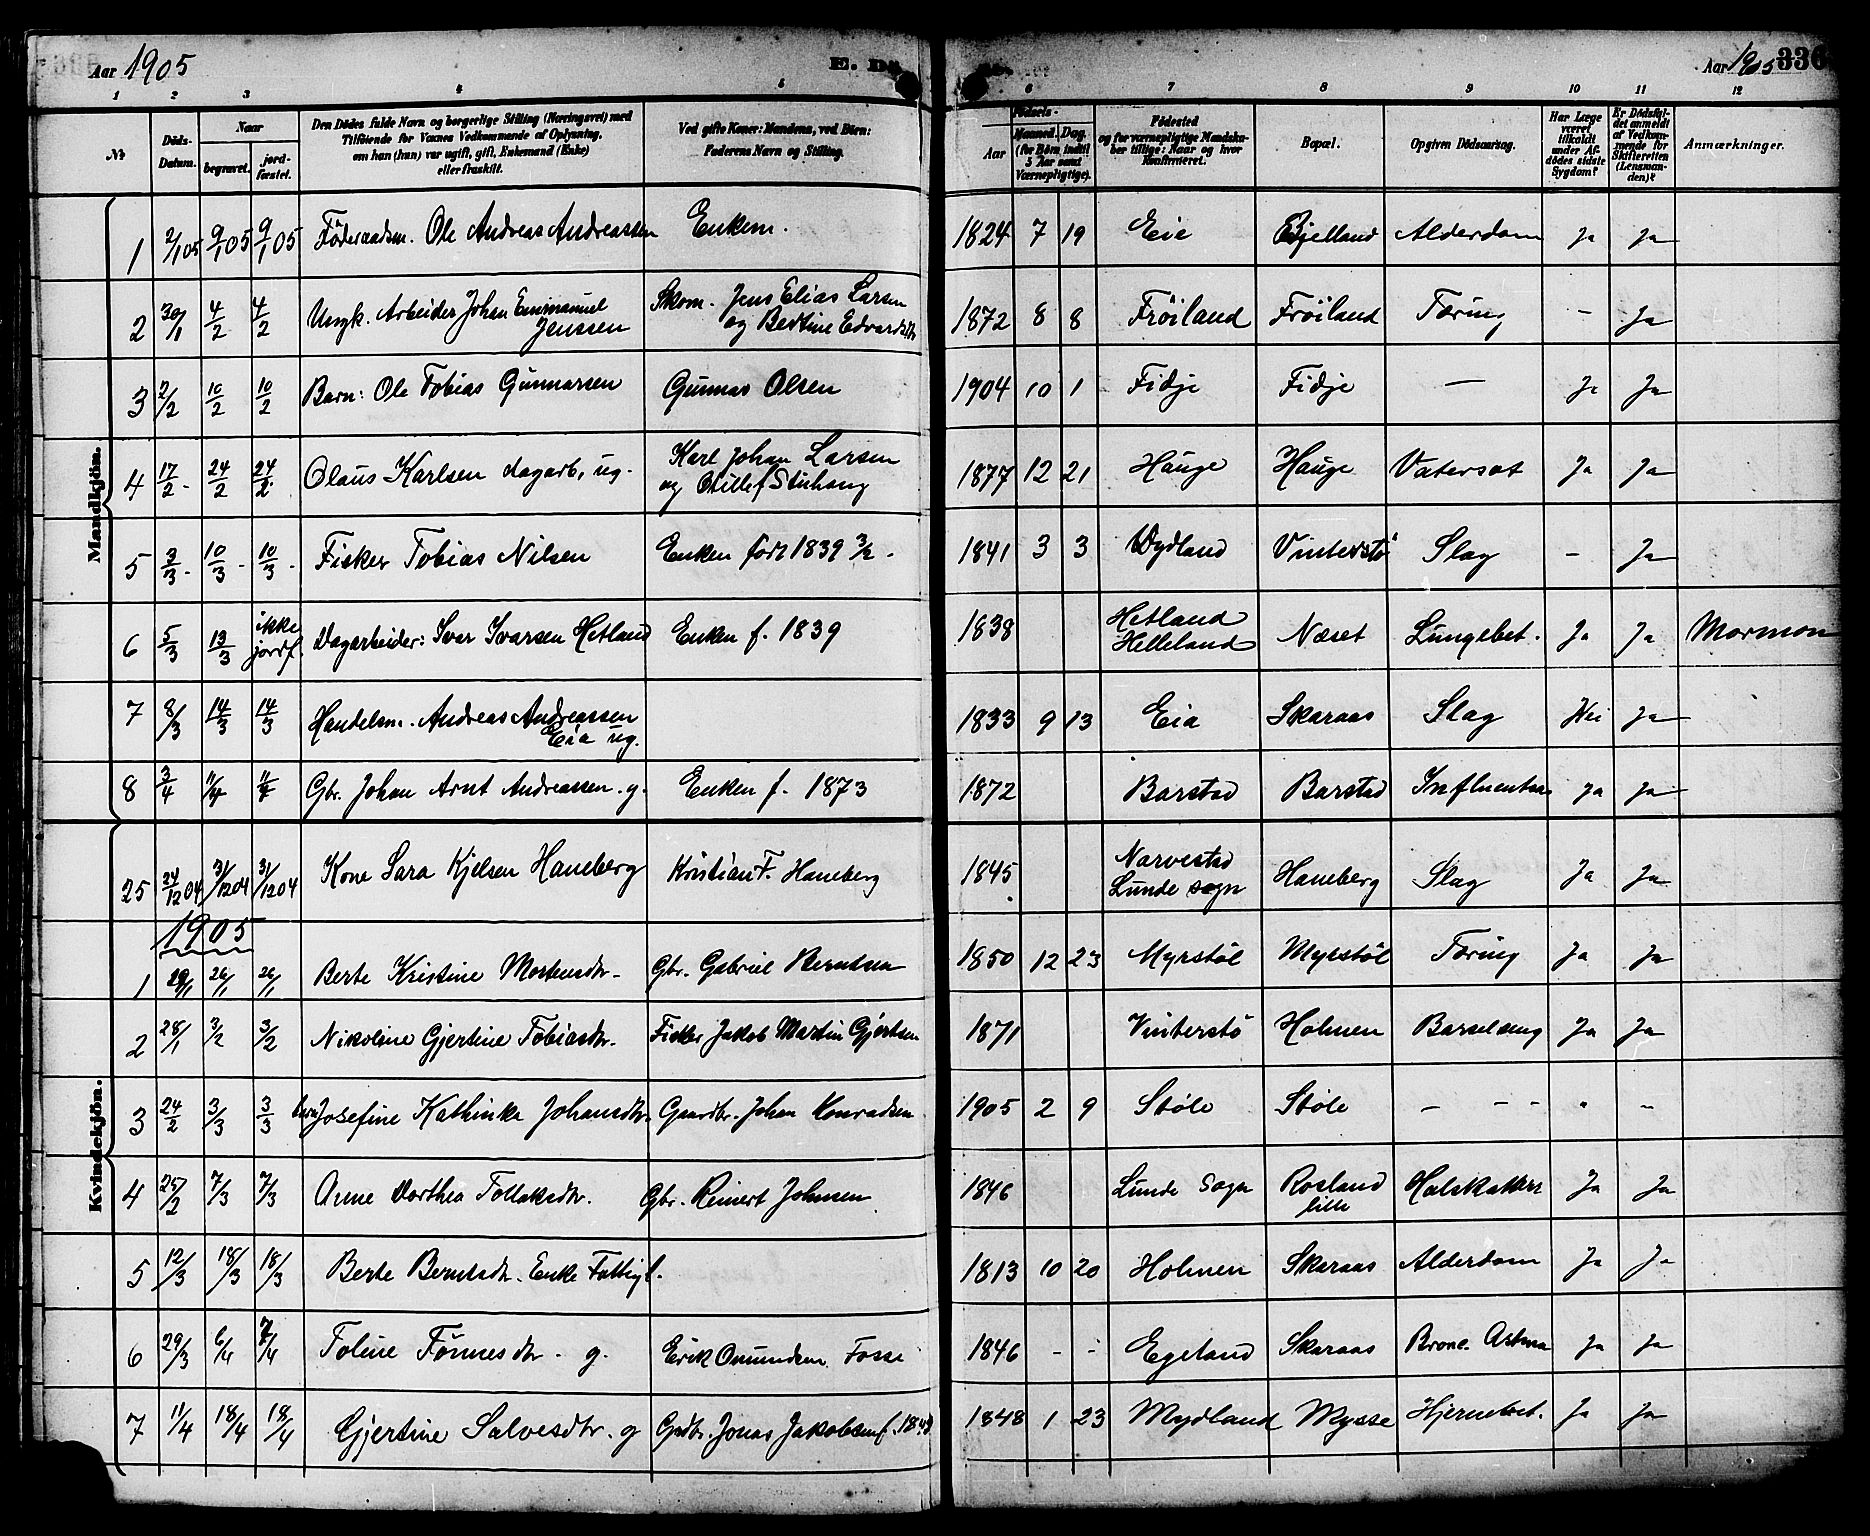 Aar 1905 E. Dø Aar 1905 336
1 2 3 4 5 6 7 8 9 10 11 12
№
Døds-Datum.
Naar
begravet.
jordfæstet.
Den Dødes fulde Navn og borgerlige Stilling (Næringsvei) med
Tilføiende for Voxnes Vedkommende af Oplysning,
om han (hun) var ugift, gift, Enkemand (Enke)
eller fraskilt.
Ved gifte Koner: Mandens, ved Børn:
Faderens Navn og Stilling.
Fødsels-
Aar
Maaned. Dag.
(for Børn indtil
5 Aar samt
Værnepligtige).
Fødested
og for værnepligtige Mandskaber
tillige: Naar og hvor
konfirmeret.
Bopæl.
Opgiven Dødsaarsag.
Har Læge
været
tilkaldt
under Afdødes
sidste
Sygdom?
Er Dødsfaldet
anmeldt
af Vedkommende
for
Skifteretten
(Lensmanden)?
Anmærkninger.
Mandkjøn.
1 2/1 05 9/1 05 9/1 05 Føderaadsm. Ole Andreas Andreassen Enkem. 1824 7 19 Eie Bjelland Alderdom Ja Ja
2 30/1 4/2 4/2 Ungk. Arbeider Johan Emmanuel Jenssen Skom. Jens Elias Larsen og Bertine Edvardsdtr 1872 8 8 Frøiland Frøiland Tæring – Ja
3 2/2 10/2 10/2 Barn: Ole Tobias Gunnarsen Gunnar Olsen 1904 10 1 Fidje Fidje — Ja Ja
4 17/2 - 24/2 24/2 Olaus Karlsen dagarb, ug. Karl Johan Larsen og 1877 12 21 Hauge Hauge Vatersot Ja Ja
5 3/3 - 10/3 - 10/3 - Fisker Tobias Nilsen Enken født 1839 3/2 - 1841 3 3 Dydland Vinterstø Slag – Ja
6 5/3 13/3 ikke jordf. Dagarbeider: Ivar Ivarsen Hetland Enken f. 1839 1838 Hetland Helleland Næset Lungebet. Ja Ja Mormon
7 8/3 14/3 14/3 Handelsm. Andreas Andreassen Eia ug. 1833 9 13 Eia Skaraas Slag Nei Ja
8 3/4 11/4 11/4 Gbr. Johan Arnt Andreassen. g. Enken f. 1873 1872 Barstad Barstad Influentsa Ja Ja
Kvindekjøn.
25 24/12 04 31/12 04 31/12 04 Kone Sara Kjelsen Haneberg Kristian F. Haneberg 1845 Narvestad Lunde sogn Haneberg Slag Ja Ja
1905
1 19/1 26/1 26/1 Berte Kristine Mortensdtr. Gbr. Gabriel Berntsen 1850 12 23 Myrstøl Myrstøl Tæring Ja Ja
2 28/1 3/2 3/2 Nikoline Gjertine Tobiasdtr. Fisker Jakob Martin Gjertsen 1871 Vinterstø Holmen Barselseng Ja Ja
3 24/2 3/3 3/3 barn Josefine Kathinka Johansdtr. Gaardbr. Johan Konradsen 1905 2 9 Støle Støle – – – " –
4 25/2 7/3 7/3 Anne Dorthea Tollaksdtr. Gbr. Reinert Johnsen 1846 Lunde Sogn Rosland lille Halskatarr Ja Ja
5 12/3 18/3 18/3 Berte Berntsdtr. Enke Fattigl. 1813 10 20 Holmen Skaraas Alderdom Ja Ja
6 29/3 6/4 7/4 Toline Tønnesdtr. g. Erik Omundsen Fosse 1846 - - Egeland Skaraas Bronc. Astma Ja Ja
7 11/4 18/4 18/4 Gjertine Salvesdtr. g Grdbr. Jonas Jakobsen f. 1849 1848 1 23 Mydland Mysse Hjernebet. Ja Ja